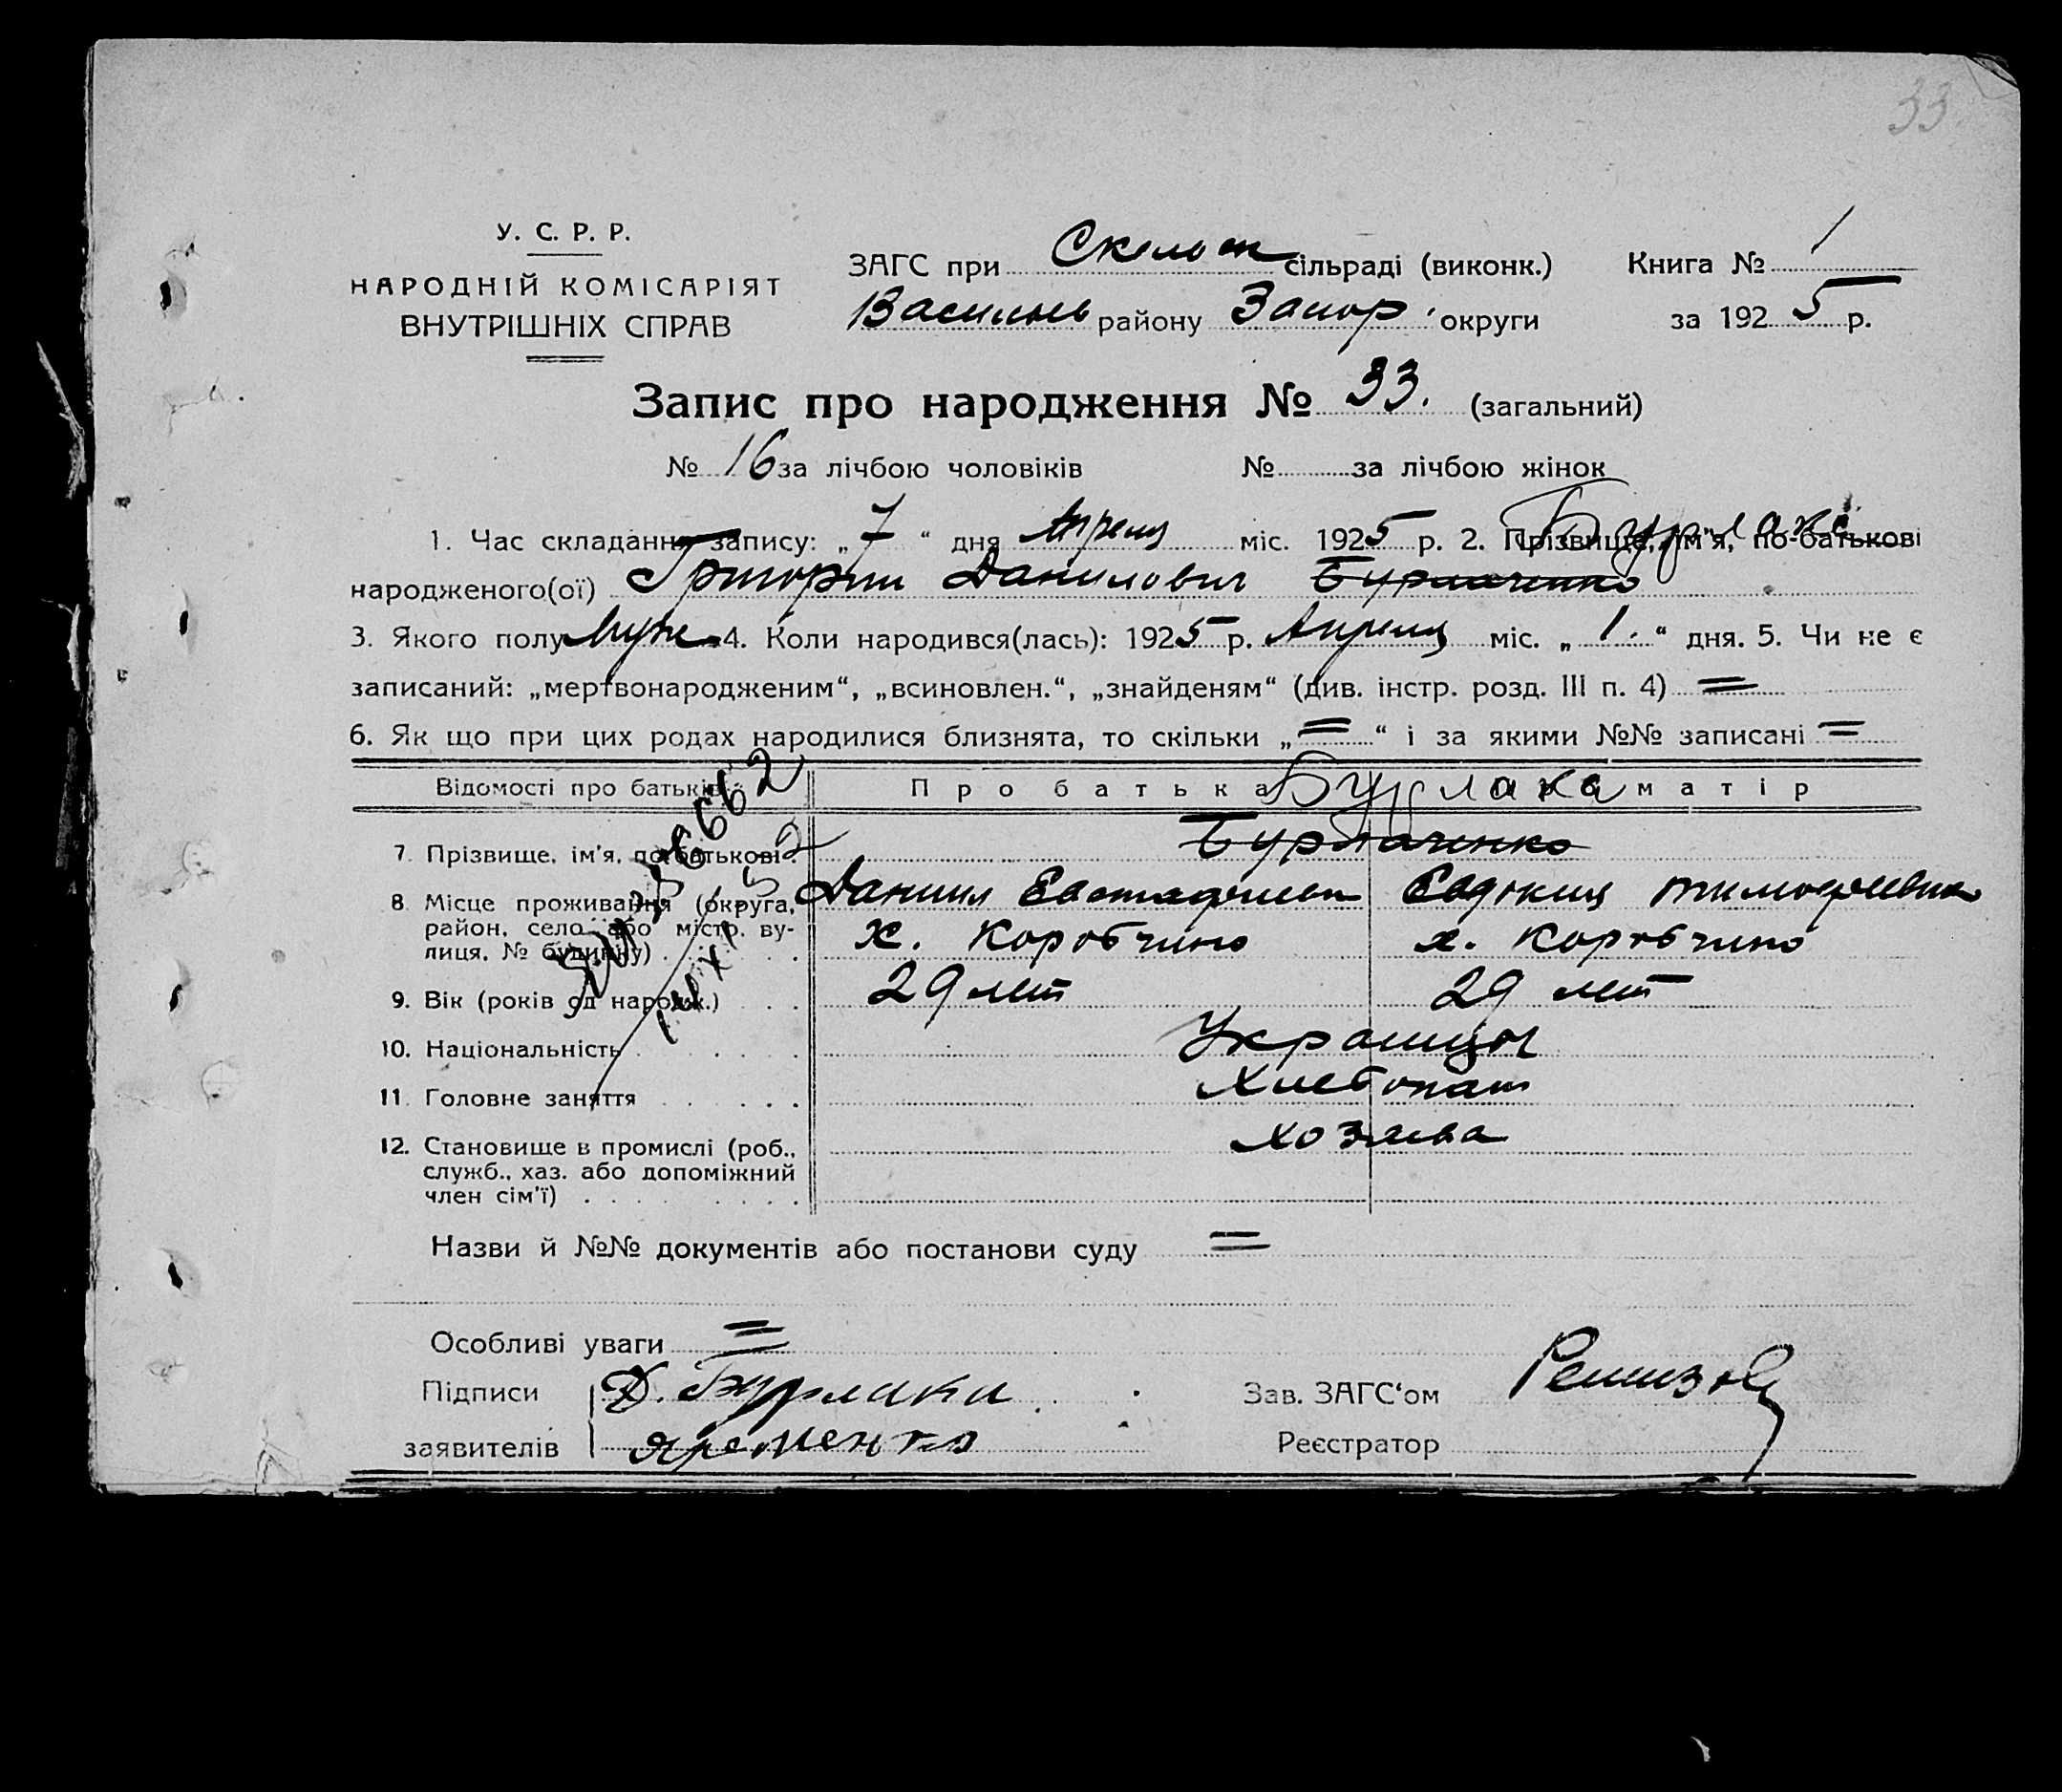 33
У. С. Р. Р.
НАРОДНІЙ КОМІСАРІЯТ
ВНУТРІШНІХ СПРАВ
ЗАГС при Скельк сільраді (виконк.) Книга № 1
Василів району Запор. округи за 1925 р.
Запис про народження № 33. (загальний)
№ 16 за лічбою чоловіків № за лічбою жінок
Бурлака
1. Час складання запису: „7“ дня Апреля міс. 1925 р. 2. Прізвище, ім'я, по-батькові
народженого(ої) Григории Данилович Бурлаченко
3. Якого полу муж 4. Коли народився(лась): 1925 р. Апреля міс. „1.“ дня. 5. Чи не є
записаний: „мертвонародженим“, „всиновлен.“, „знайденям“ (див. інстр. розд. III п. 4) =
6. Як що при цих родах народилися близнята, то скільки „=“ і за якими №№ записані =
Відомості про батьків: Про батька Бурлака матір
7. Прізвище, ім'я, по батькові Бурлаченко
8. Місце проживання (округа, Даниил Евстафиев Евдокия Тимофеевна
район, село або містр. ву- х. Коробчино х. Коробчино
лиця, № будинку)
9. Вік (років од народж.) 29 лет 29 лет
10. Національність Украинцы
11. Головне заняття Хлебопаш
12. Становище в промислі (роб., хозяева
служб., хаз. або допоміжний
член сім'ї)
Назви й №№ документів або постанови суду =
Особливі уваги =
Підписи Д. Бурлака Зав. ЗАГС‘ом
заявителів Яременко Реєстратор